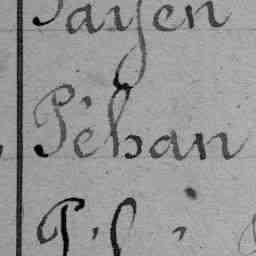 Payen
Péhan